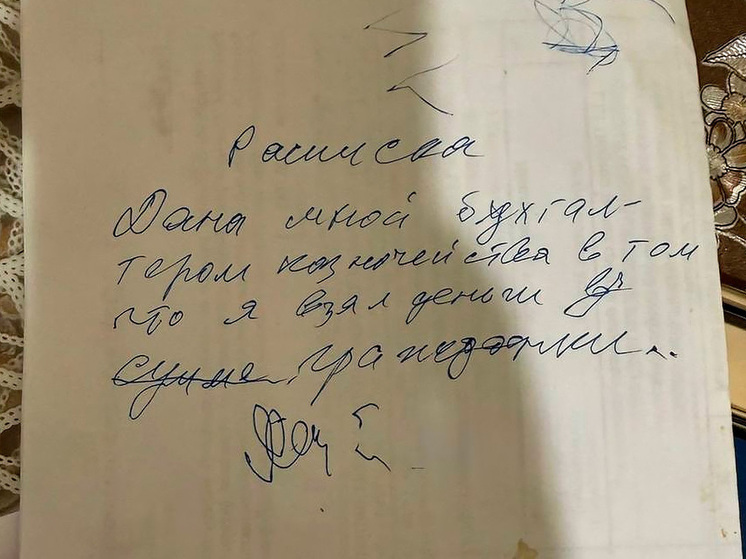 Расписка
Дана мной бухгал-
тером казначейства в том
что я взял деньги у
сумме гражданки...